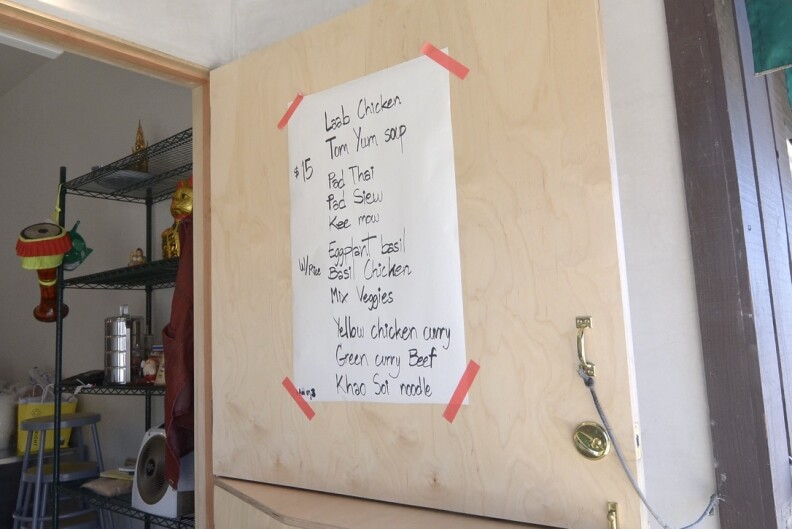 Laab Chicken
Tom Yum soup
$15
Pad Thai
Pad Siew
Kee mow
Eggplant basil
W/Rice Basil Chicken
Mix Veggies
Yellow chicken curry
Green curry Beef
Khao Soi noodle